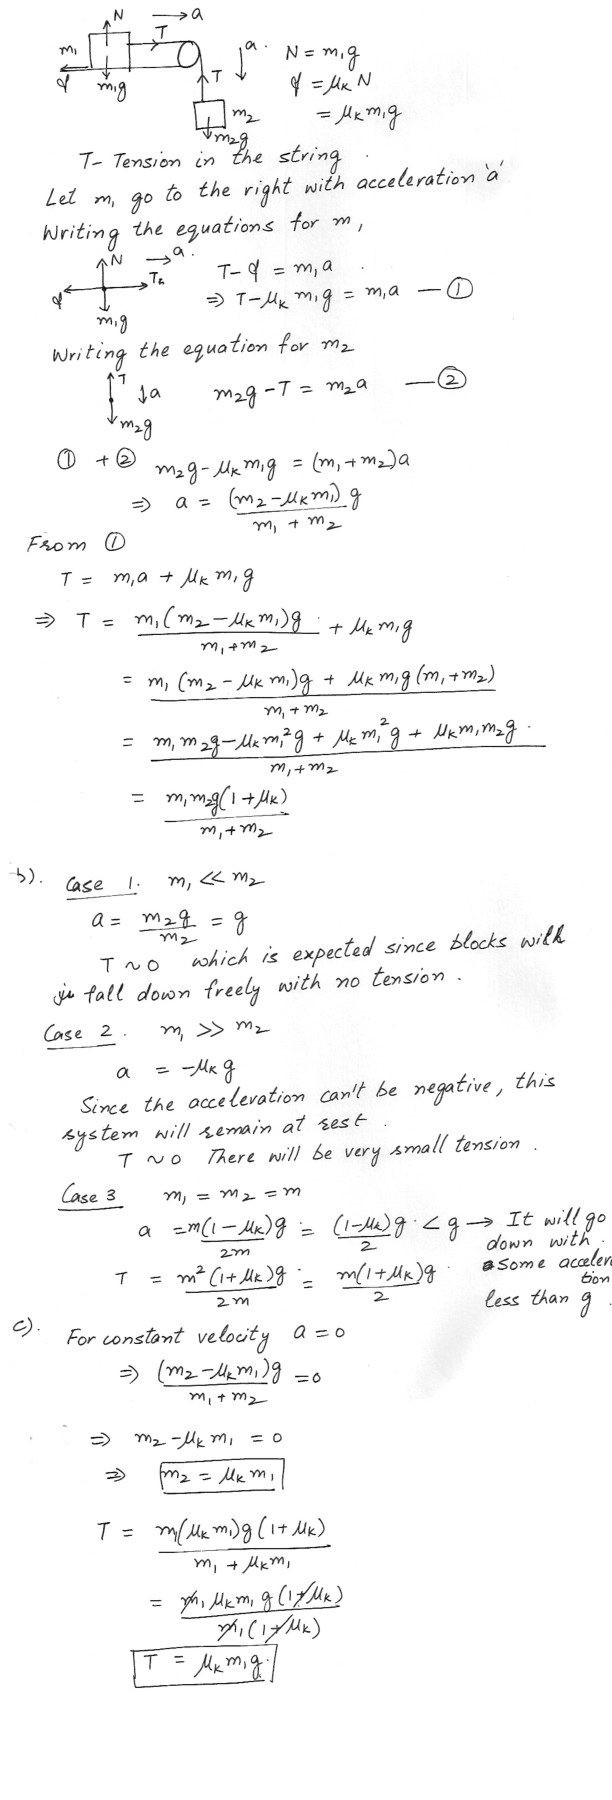 N → a
T
m₁
a.
N = m₁g
f
m₁g
T
f = μₖ N
m₂
= μₖ m₁g
m₂g
T- Tension in the string.
Let m₁ go to the right with acceleration 'a'
Writing the equations for m₁
N → a.
T - f = m₁a
f
⇒ T - μₖ m₁g = m₁a — ①
m₁g
Writing the equation for m₂
T ↓a m₂g - T = m₂a — ②
m₂g
① + ② m₂g - μₖ m₁g = (m₁+m₂)a
⇒ a = (m₂ - μₖm₁) g / m₁ + m₂
From ①
T = m₁a + μₖ m₁g
⇒ T = m₁(m₂ - μₖ m₁)g / m₁+m₂ + μₖ m₁g
= m₁ (m₂ - μₖ m₁)g + μₖ m₁g (m₁+m₂) / m₁+m₂
= m₁ m₂g - μₖ m₁²g + μₖ m₁²g + μₖ m₁m₂g. / m₁+m₂
= m₁m₂g(1+μₖ) / m₁+m₂
b). Case 1. m₁ << m₂
a = m₂g / m₂ = g
T ~ 0 which is expected since blocks will
fall down freely with no tension.
Case 2. m₁ >> m₂
a = -μₖ g
Since the acceleration can't be negative, this
system will remain at rest.
T ~ 0 There will be very small tension.
Case 3 m₁ = m₂ = m
a = m(1-μₖ)g / 2m = (1-μₖ)g / 2 < g → It will go
down with.
T = m²(1+μₖ)g / 2m = m(1+μₖ)g / 2 some accelera
tion
less than g.
c). For constant velocity a = 0
⇒ (m₂ - μₖ m₁)g / m₁ + m₂ = 0
⇒ m₂ - μₖ m₁ = 0
⇒ m₂ = μₖ m₁
T = m₁(μₖ m₁)g (1+μₖ) / m₁ + μₖ m₁
= m₁ μₖ m₁ g (1+μₖ) / m₁ (1+μₖ)
T = μₖ m₁g.